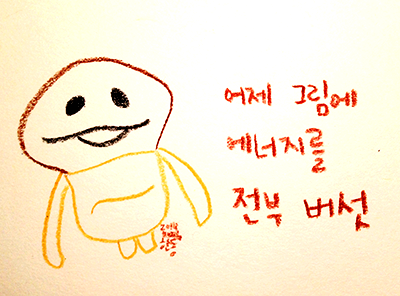 어제 그림에
에너지를
전부 버섯